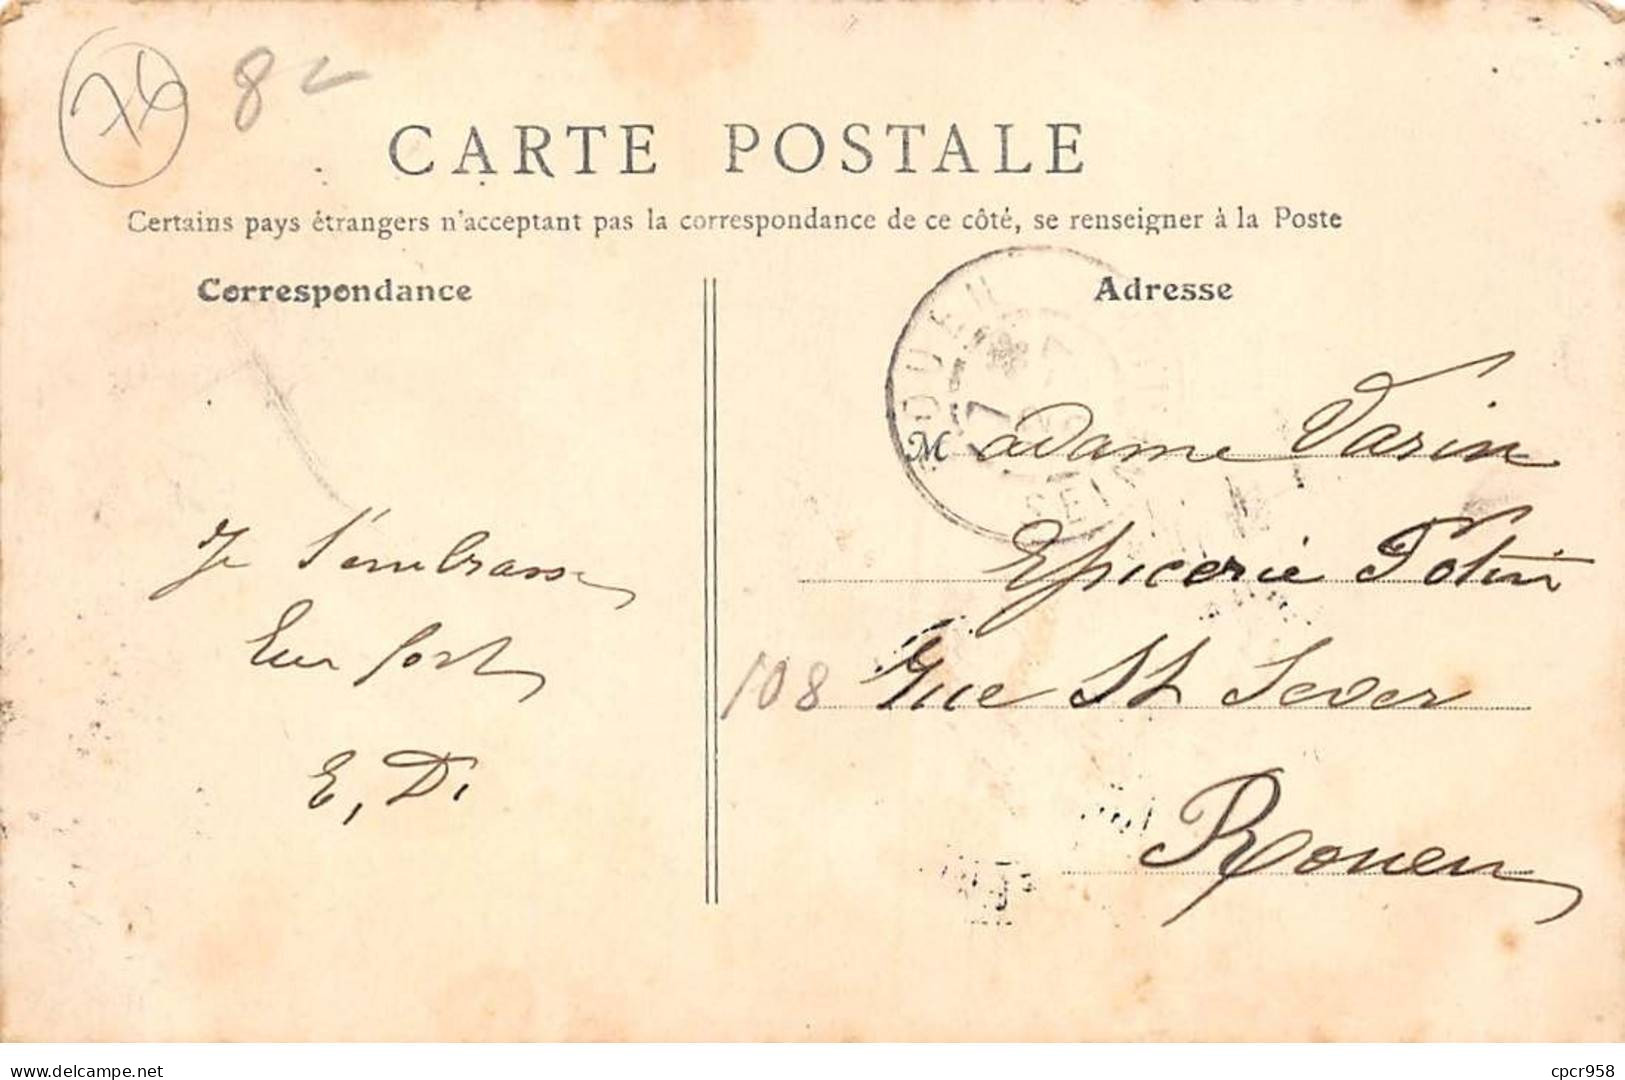 76
8
CARTE POSTALE
Certains pays étrangers n'acceptant pas la correspondance de ce côté, se renseigner à la Poste
Correspondance
Adresse
ROUEN
SEINE
Madame Varin
Epicerie Potin
108 Rue St Sever
Rouen
Je t'embrasse
bien fort
E. D.
www.delcampe.net
cpcr958